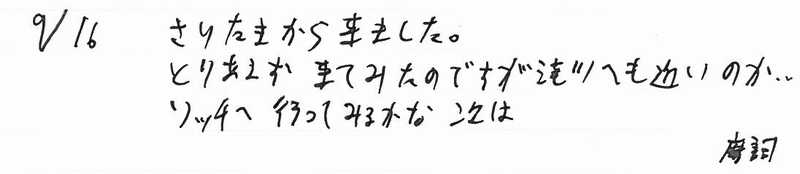 9/16 さいたまから来ました。
とりあえず来てみたのですが滝ツへも近いのか..
ソッチへ行ってみるかな 次は